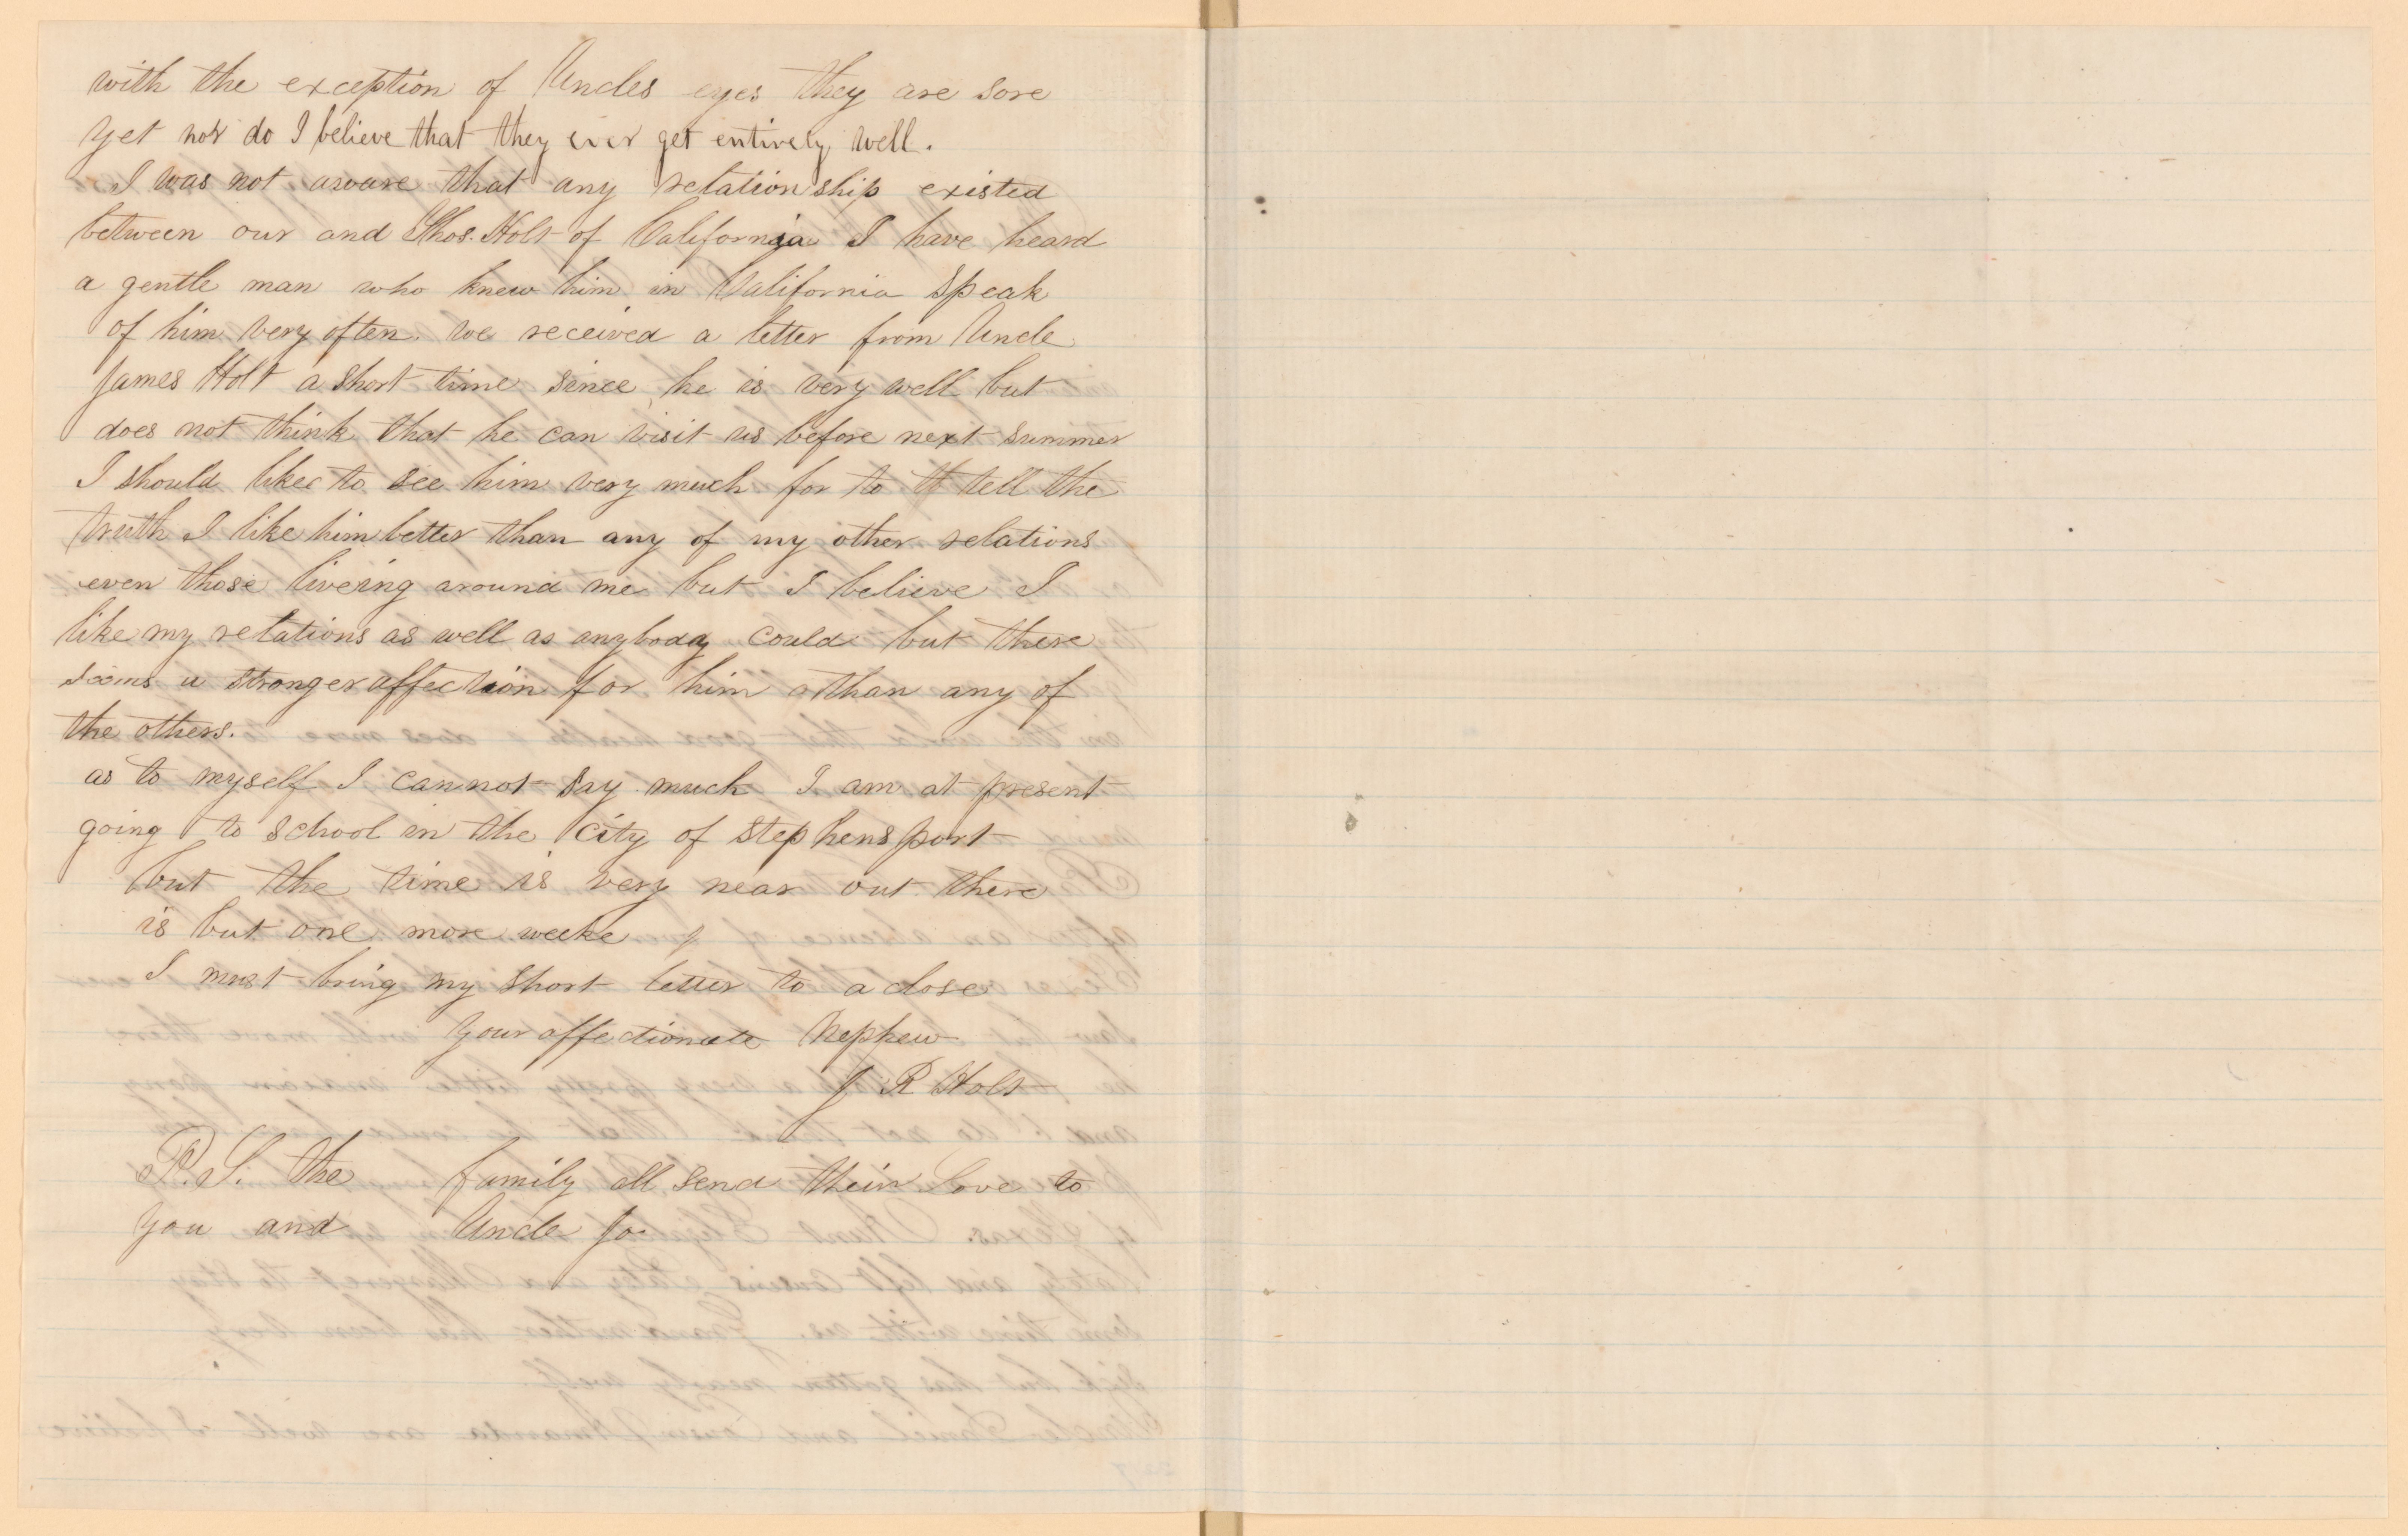 with the exception of Uncles eyes they are sore
yet nor do I believe that they ever get entirely well.
I was not aware that any relationship existed
between our and Thos. Holt of California I have heard
a gentle man who knew him in California speak
of him very often. we received a letter from Uncle
James Holt a short time since, he is very well but
does not think that he can visit us before next summer
I should like to see him very much for to tell the
truth I like him better than any of my other relations
even those livering around me but I believe I
like my relations as well as anybody could but there
seems a stronger affection for him than any of
the others.
as to myself I cannot say much I am at present
going to school in the city of Stephensport
but the time is very near out there
is but one more weeke
I must bring my short letter to a close
Your affectionate Nephew
J R Holt
P.S. the family all send their Love to
you and Uncle Jo.